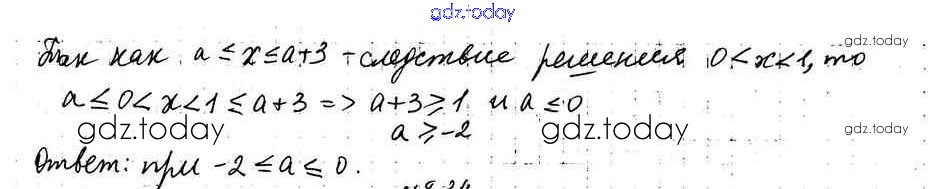 gdz.today
Так как a ≤ x ≤ a+3 - следствие решения 0 < x < 1, то
gdz.today
a ≤ 0 < x < 1 ≤ a+3 => a+3 ≥ 1 и a ≤ 0
gdz.today gdz.today gdz.today
a ≥ -2
Ответ: при -2 ≤ a ≤ 0.